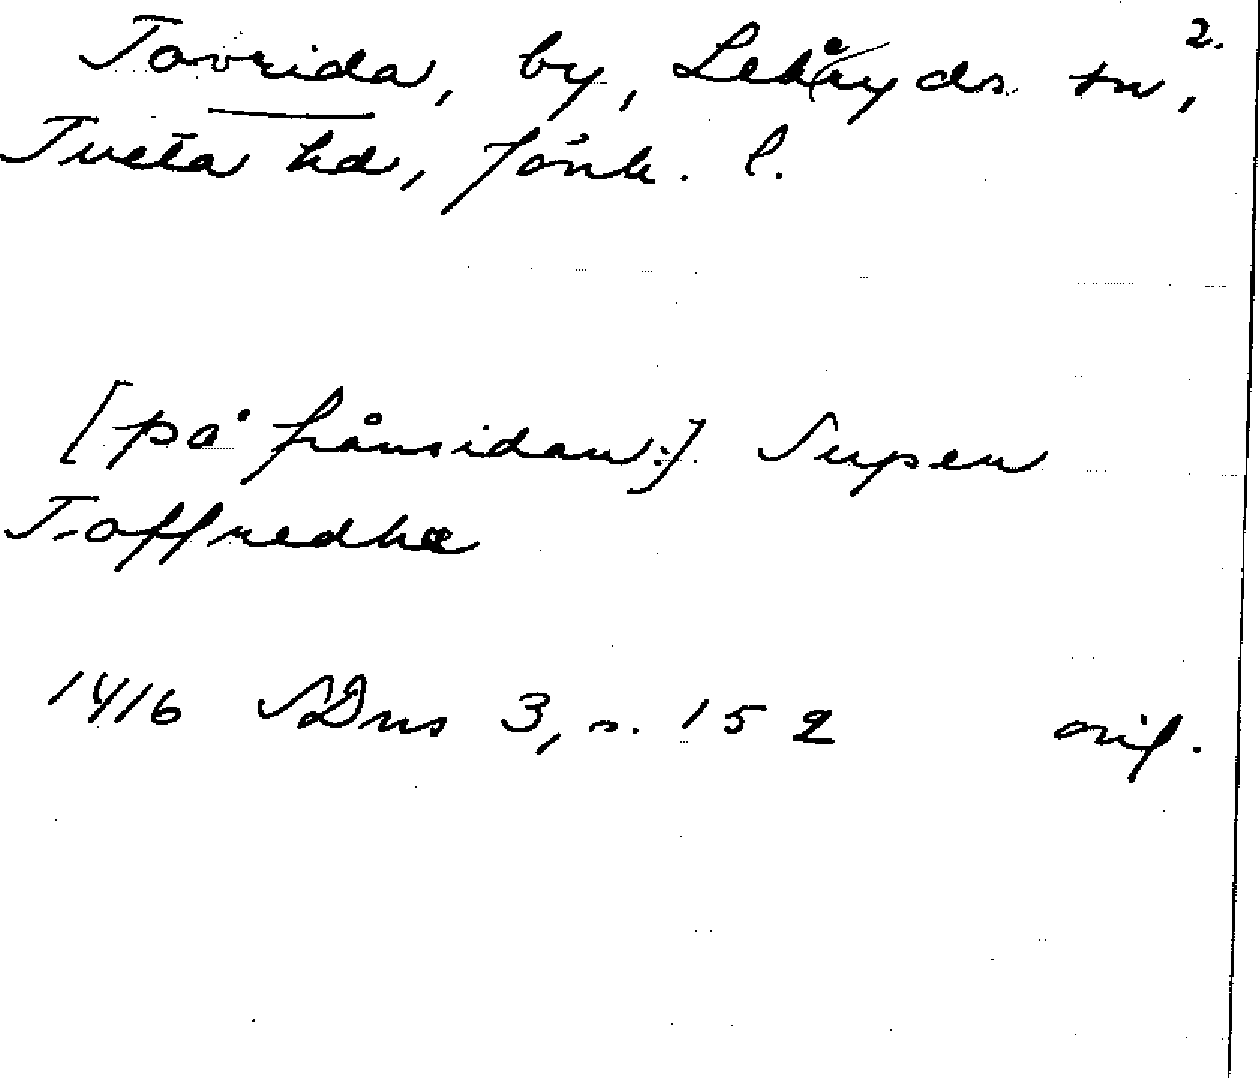 2.
Tovrida, by, Lekeryds sn,
Tveta hd, Jönk. l.
[på frånsidan:] Super
Toffredhæ
1416 SDns 3, s. 152 orig.